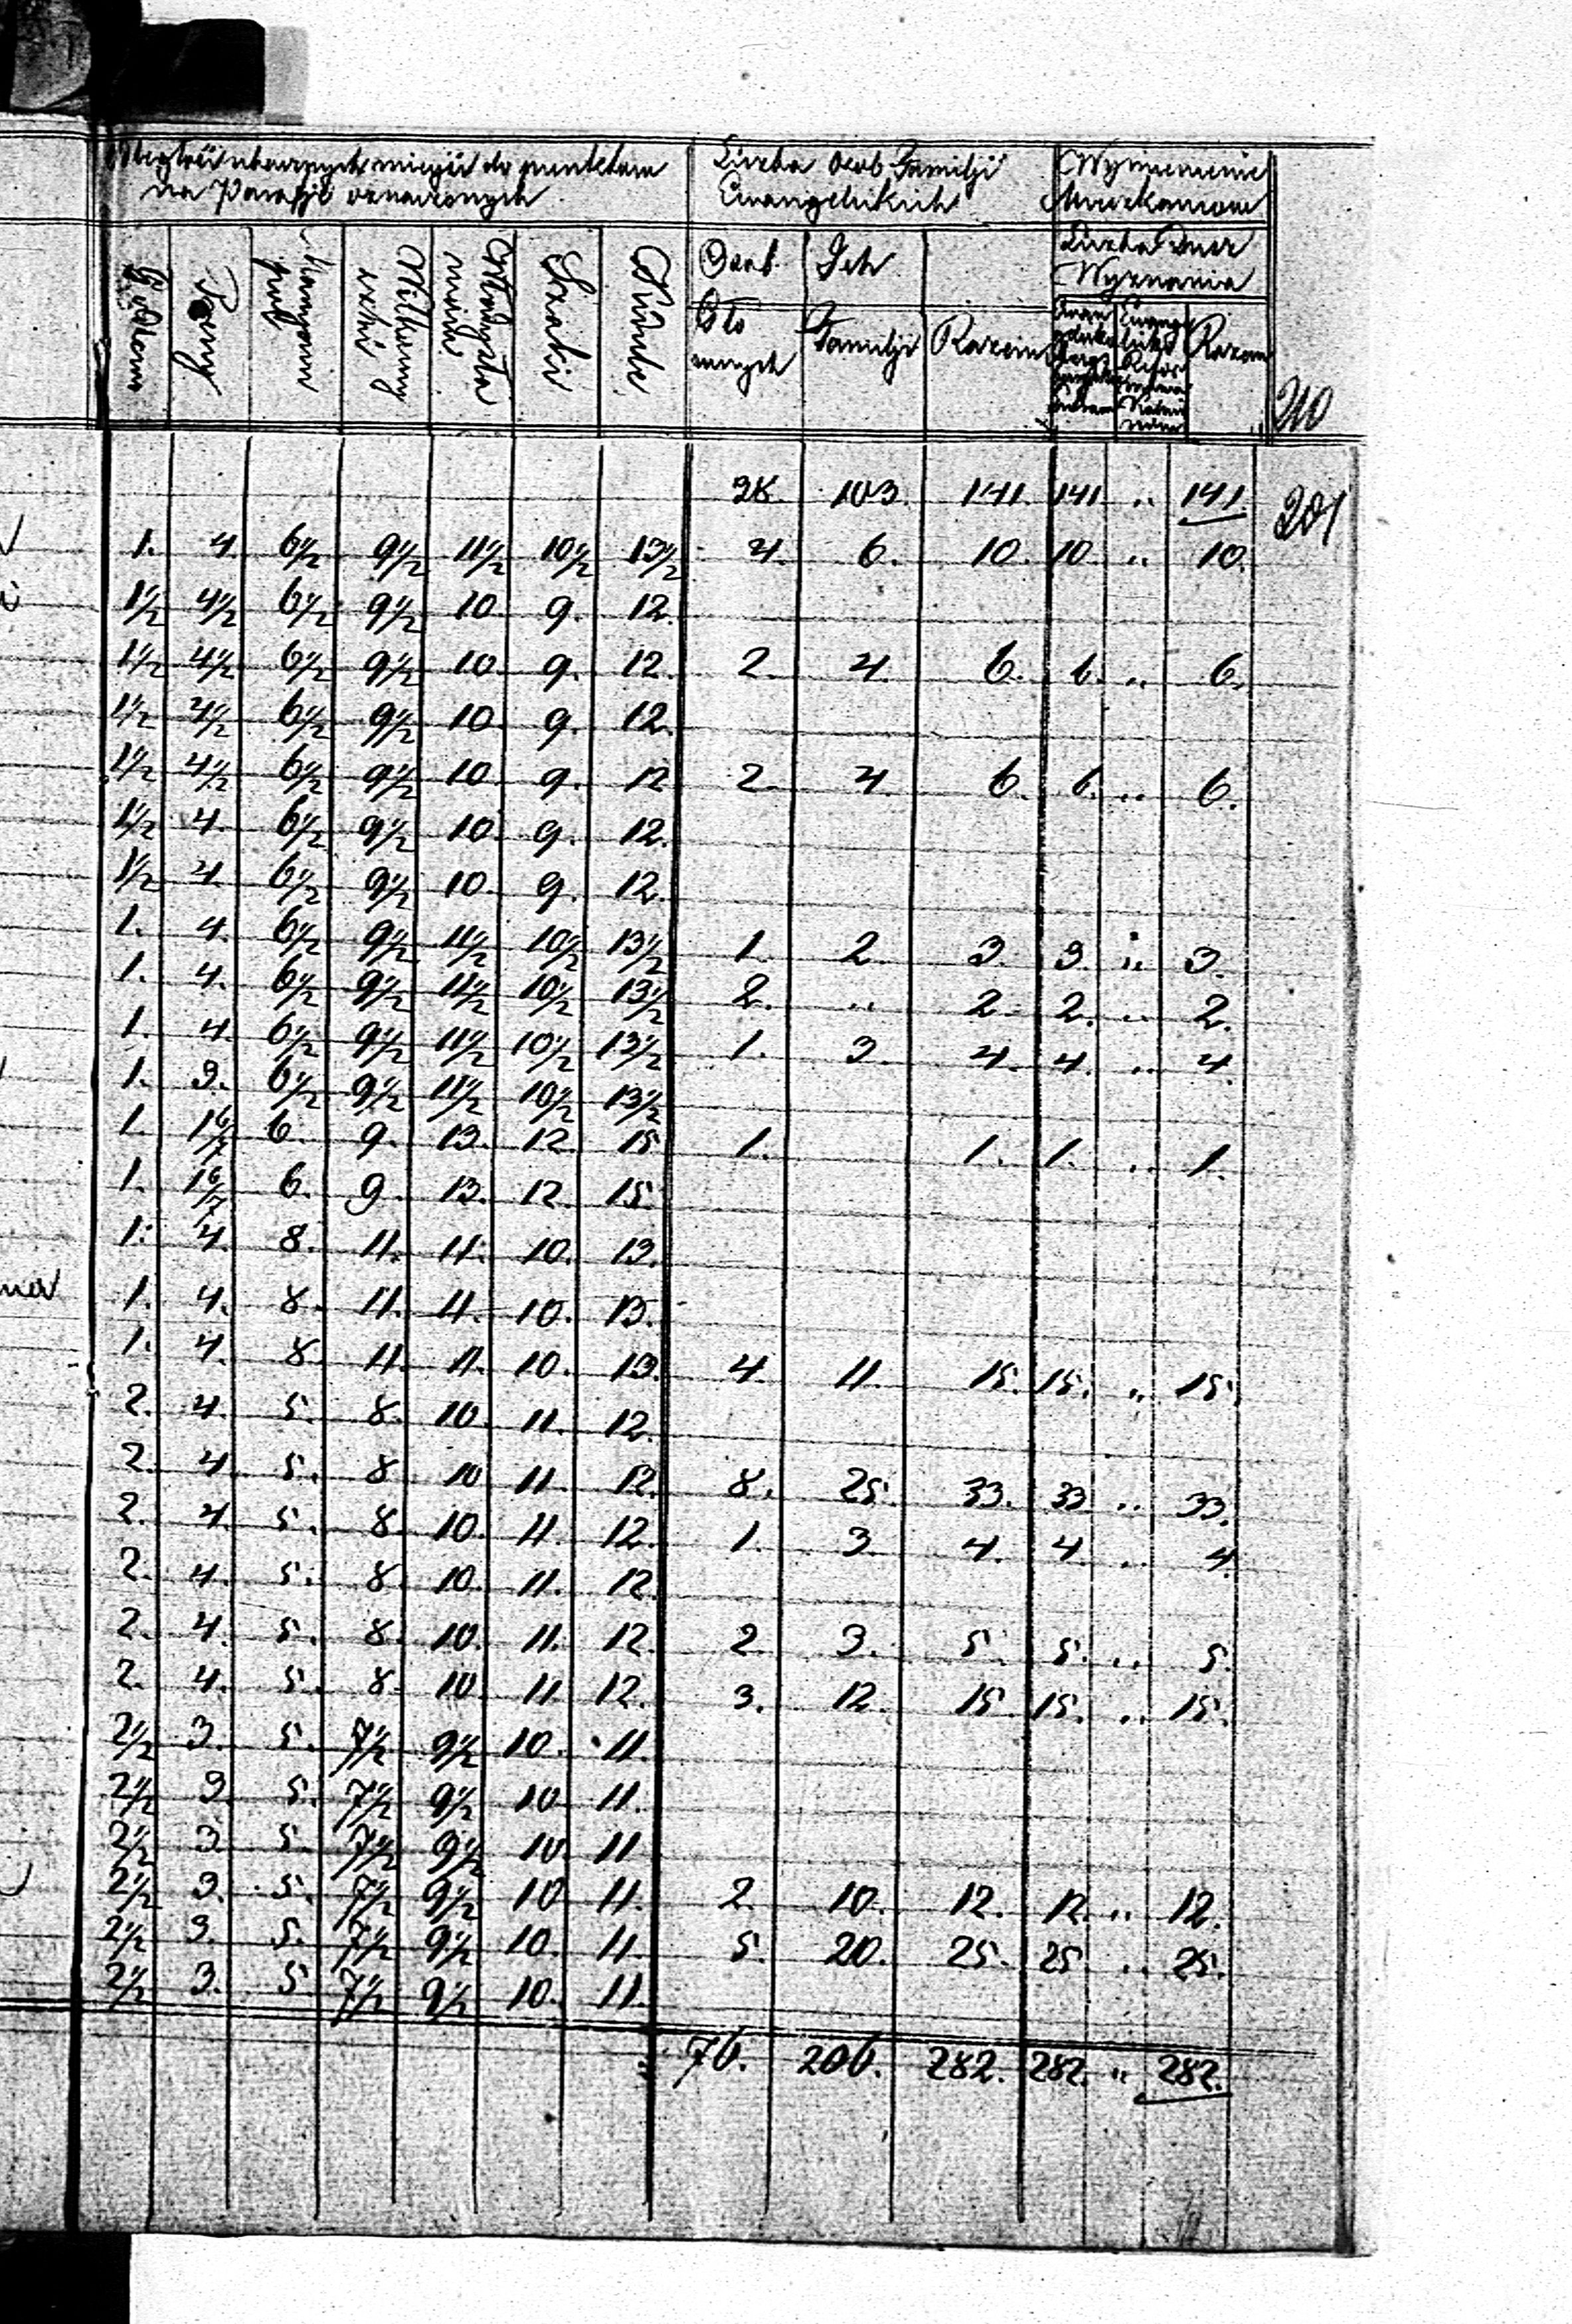 na Parafje oznaczonych
Liczba Osob Familji
Ewangelickich
Liczba Dusz
Wyznania
Osob
Ich
Familji
Razem
Razem
210
201
28. 103. 141. 141 " 141.
1. 4 6½ 9½ 11½ 10½ 13½ 4. 6. 10. 10. " 10.
1½ 4½ 6½ 9½ 10 9. 12.
1½ 4½ 6½ 9½ 10. 9. 12. 2. 4. 6. 6. " 6.
1½ 4½ 6½ 9½ 10. 9. 12.
1½ 4½ 6½ 9½ 10 9. 12 2. 4. 6. 6. " 6.
1½ 4. 6½ 9½ 10. 9. 12.
1½ 4. 6½ 9½ 10. 9. 12.
1. 4. 6½ 9½ 11½ 10½ 13½ 1. 2. 3. 3. " 3.
1. 4. 6½ 9½ 11½ 10½ 13½ 2. " 2. 2. " 2.
1. 4. 6½ 9½ 11½ 10½ 13½ 1. 3. 4. 4. " 4.
1. 3. 6½ 9½ 11½ 10½ 13½
1. 1 6/7 6. 9. 13. 12. 15 1. 1. 1. " 1.
1. 1 6/7 6. 9. 13. 12. 15.
1. 4. 8. 11. 11. 10. 13.
1. 4. 8. 11. 11. 10. 13.
1. 4. 8. 11. 11. 10. 13. 4. 11. 15. 15. " 15.
2. 4. 5. 8. 10. 11. 12.
2. 4. 5. 8 10 11. 12. 8. 25. 33. 33 " 33.
2. 4. 5. 8. 10. 11. 12. 1. 3. 4. 4 " 4.
2. 4. 5. 8. 10. 11. 12.
2. 4. 5. 8. 10. 11. 12. 2. 3. 5. 5. " 5.
2. 4. 5. 8. 10. 11. 12. 3. 12. 15. 15. " 15.
2½ 3. 5. 7½ 9½ 10. 11.
2½ 3. 5. 7½ 9½ 10 11.
2½ 3. 5. 7½ 9½ 10. 11
2½ 3. 5. 7½ 9½ 10 11. 2. 10. 12. 12. " 12.
2½ 3. 5. 7½ 9½ 10. 11. 5. 20. 25. 25 " 25.
2½ 3. 5 7½ 9½ 10. 11.
76. 206. 282. 282. " 282.